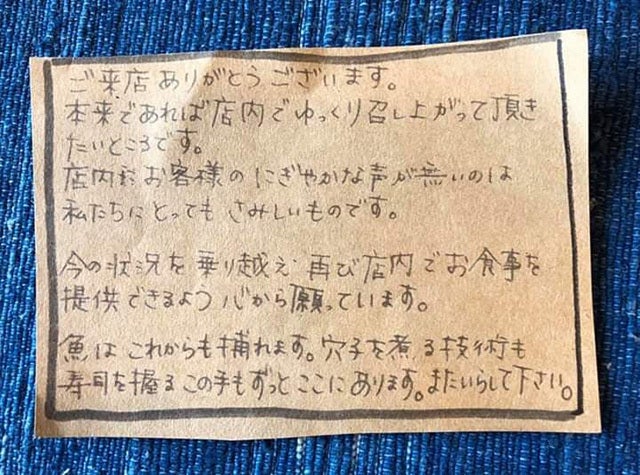 ご来店ありがとうございます。
本来であれば店内でゆっくり召し上がって頂き
たいところです。
店内にお客様のにぎやかな声が無いのは
私たちにとってもさみしいものです。
今の状況を乗り越え再び店内でお食事を
提供できるよう心から願っています。
魚はこれからも捕れます。穴子を煮る技術も
寿司を握るこの手もずっとここにあります。またいらして下さい。